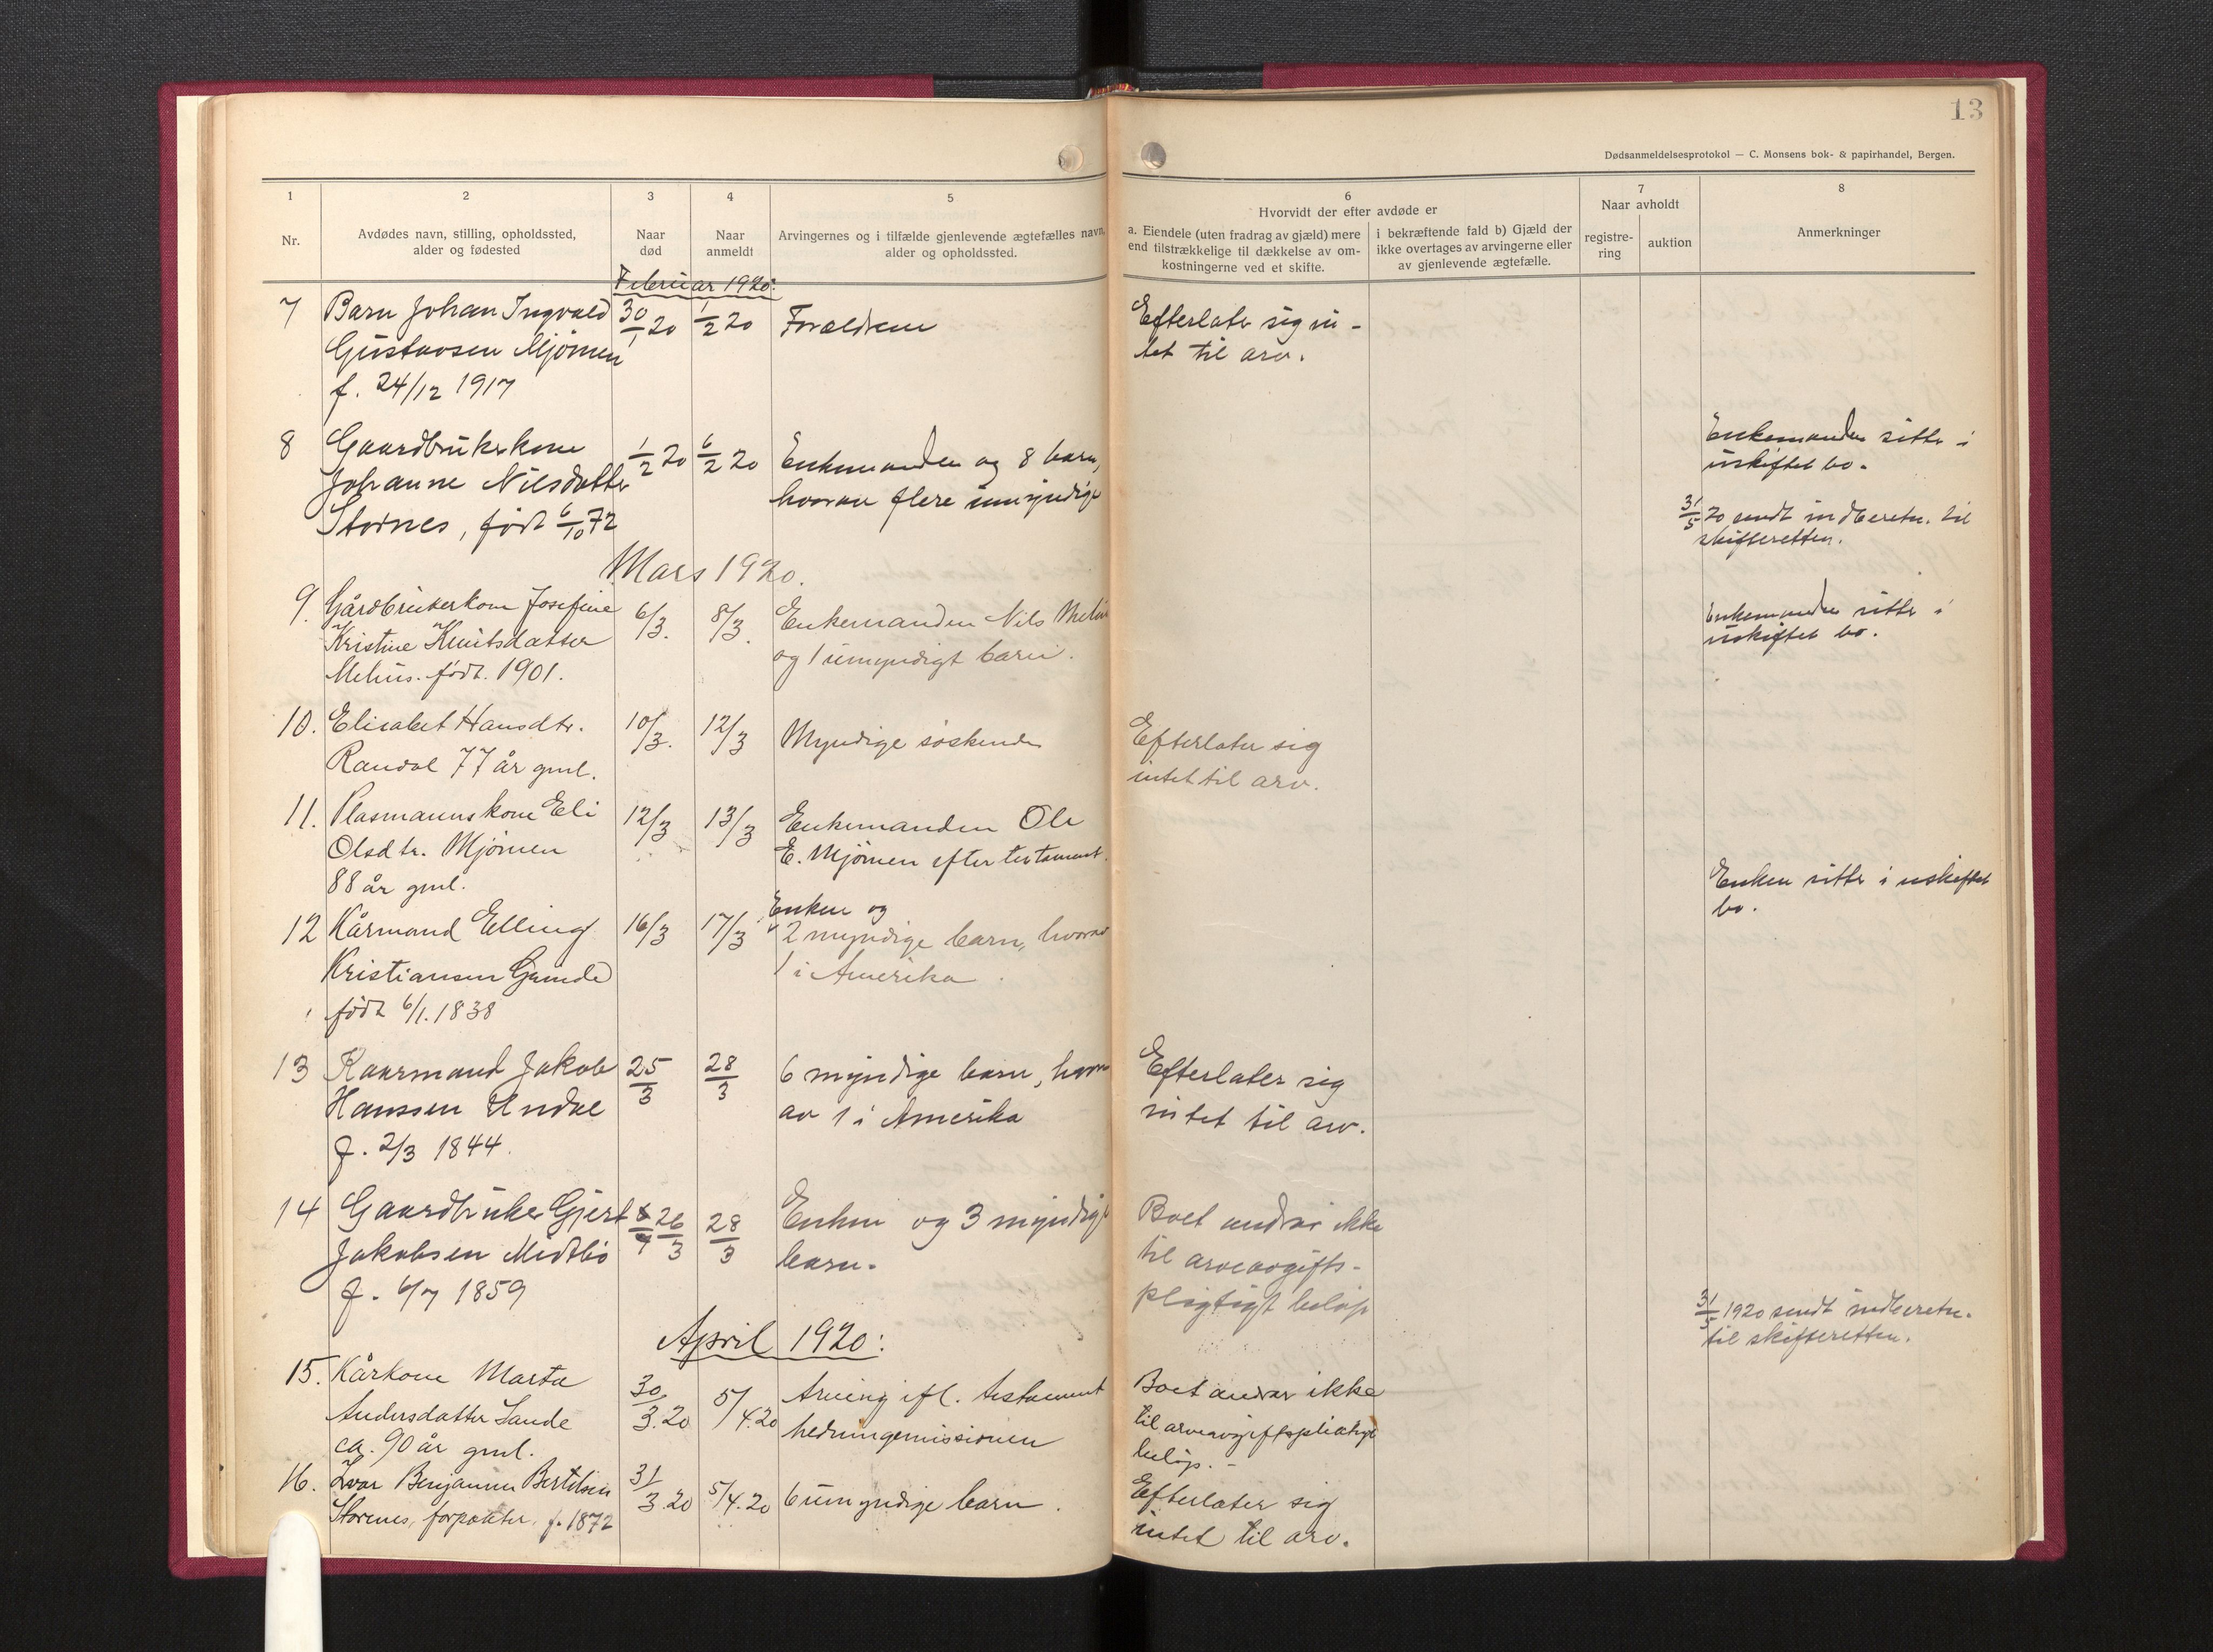 13
Dødsanmeldelsesprotokol — C. Monsens bok- & papirhandel, Bergen.
1
2
3
4
5
6
7
8
Nr.
Avdødes navn, stilling, opholdssted,
alder og fødested
Naar
død
Naar
anmeldt
Arvingernes og i tilfælde gjenlevende ægtefælles navn,
alder og opholdssted.
Hvorvidt der efter avdøde er
a. Eiendele (uten fradrag av gjæld) mere
end tilstrækkelige til dækkelse av om-
kostningerne ved et skifte.
i bekræftende fald b) Gjæld der
ikke overtages av arvingerne eller
av gjenlevende ægtefælle.
Naar avholdt
registre-
ring
auktion
Anmerkninger
Februar 1920:
7 Barn Johan Ingvald 30/1 20 1/2 20 Forældrene Efterlater sig in-
Gustavsen Mjömen tet til arv.
f. 24/12 1917
8 Gaardbrukerkone 1/2 20 6/2 20 Enkemanden og 8 barn, Enkemanden sitter i
Johanne Nilsdatter hvorav flere umyndige uskiftet bo.
Stornes, født 6/10 72 31/5 20 sendt indberetn. til
skifteretten.
Mars 1920.
9. Gårdbrukerkone Josefine 6/3. 8/3. Enkemanden Nils Mehus Enkemanden sitter i
Kristine Knutsdatter og 1 umyndigt barn. uskiftet bo.
Mehus. født. 1901.
10. Elisabet Hansdtr. 10/3. 12/3 Myndige søskende Efterlater sig
Randal 77 år gml. intet til arv.
11. Plasmannskone Eli 12/3 13/3 Enkemanden Ole
Olsdtr. Mjömen E. Mjömen efter testament.
88 år gml.
Enken sitter i uskiftet
bo.
Enken og
12 Kårmand Elling 16/3 17/3 2 myndige barn, hvorav
Kristiansen Grinde 1 i Amerika
født 6/1. 1838
13 Kaarmand Jakob 25/3 28/3 6 myndige barn, hvor- Efterlater sig
Hanssen Undal av 1 i Amerika intet til arv.
f. 2/3 1844.
14 Gaardbruker Gjert 26/3 28/3 Enken og 3 myndige Boet andrar ikke
Jakobsen Midtbö barn. til arveavgifts-
f. 6/7 1859 pligtigt beløp
31/5 1920 sendt indberetn.
til skifteretten.
April 1920:
15. Kårkone Marta 30/3.20 5/4.20 Arving ifl. testament Boet andrar ikke
Andersdatter Sande hedningemissionen til arveavgiftspliktige
ca. 90 år gml. beløp. -
16. Ivar Benjamin Bertilsen 31/3.20 5/4.20 6 umyndige barn. Efterlater sig
Stornes, forpakter, f. 1872 intet til arv.